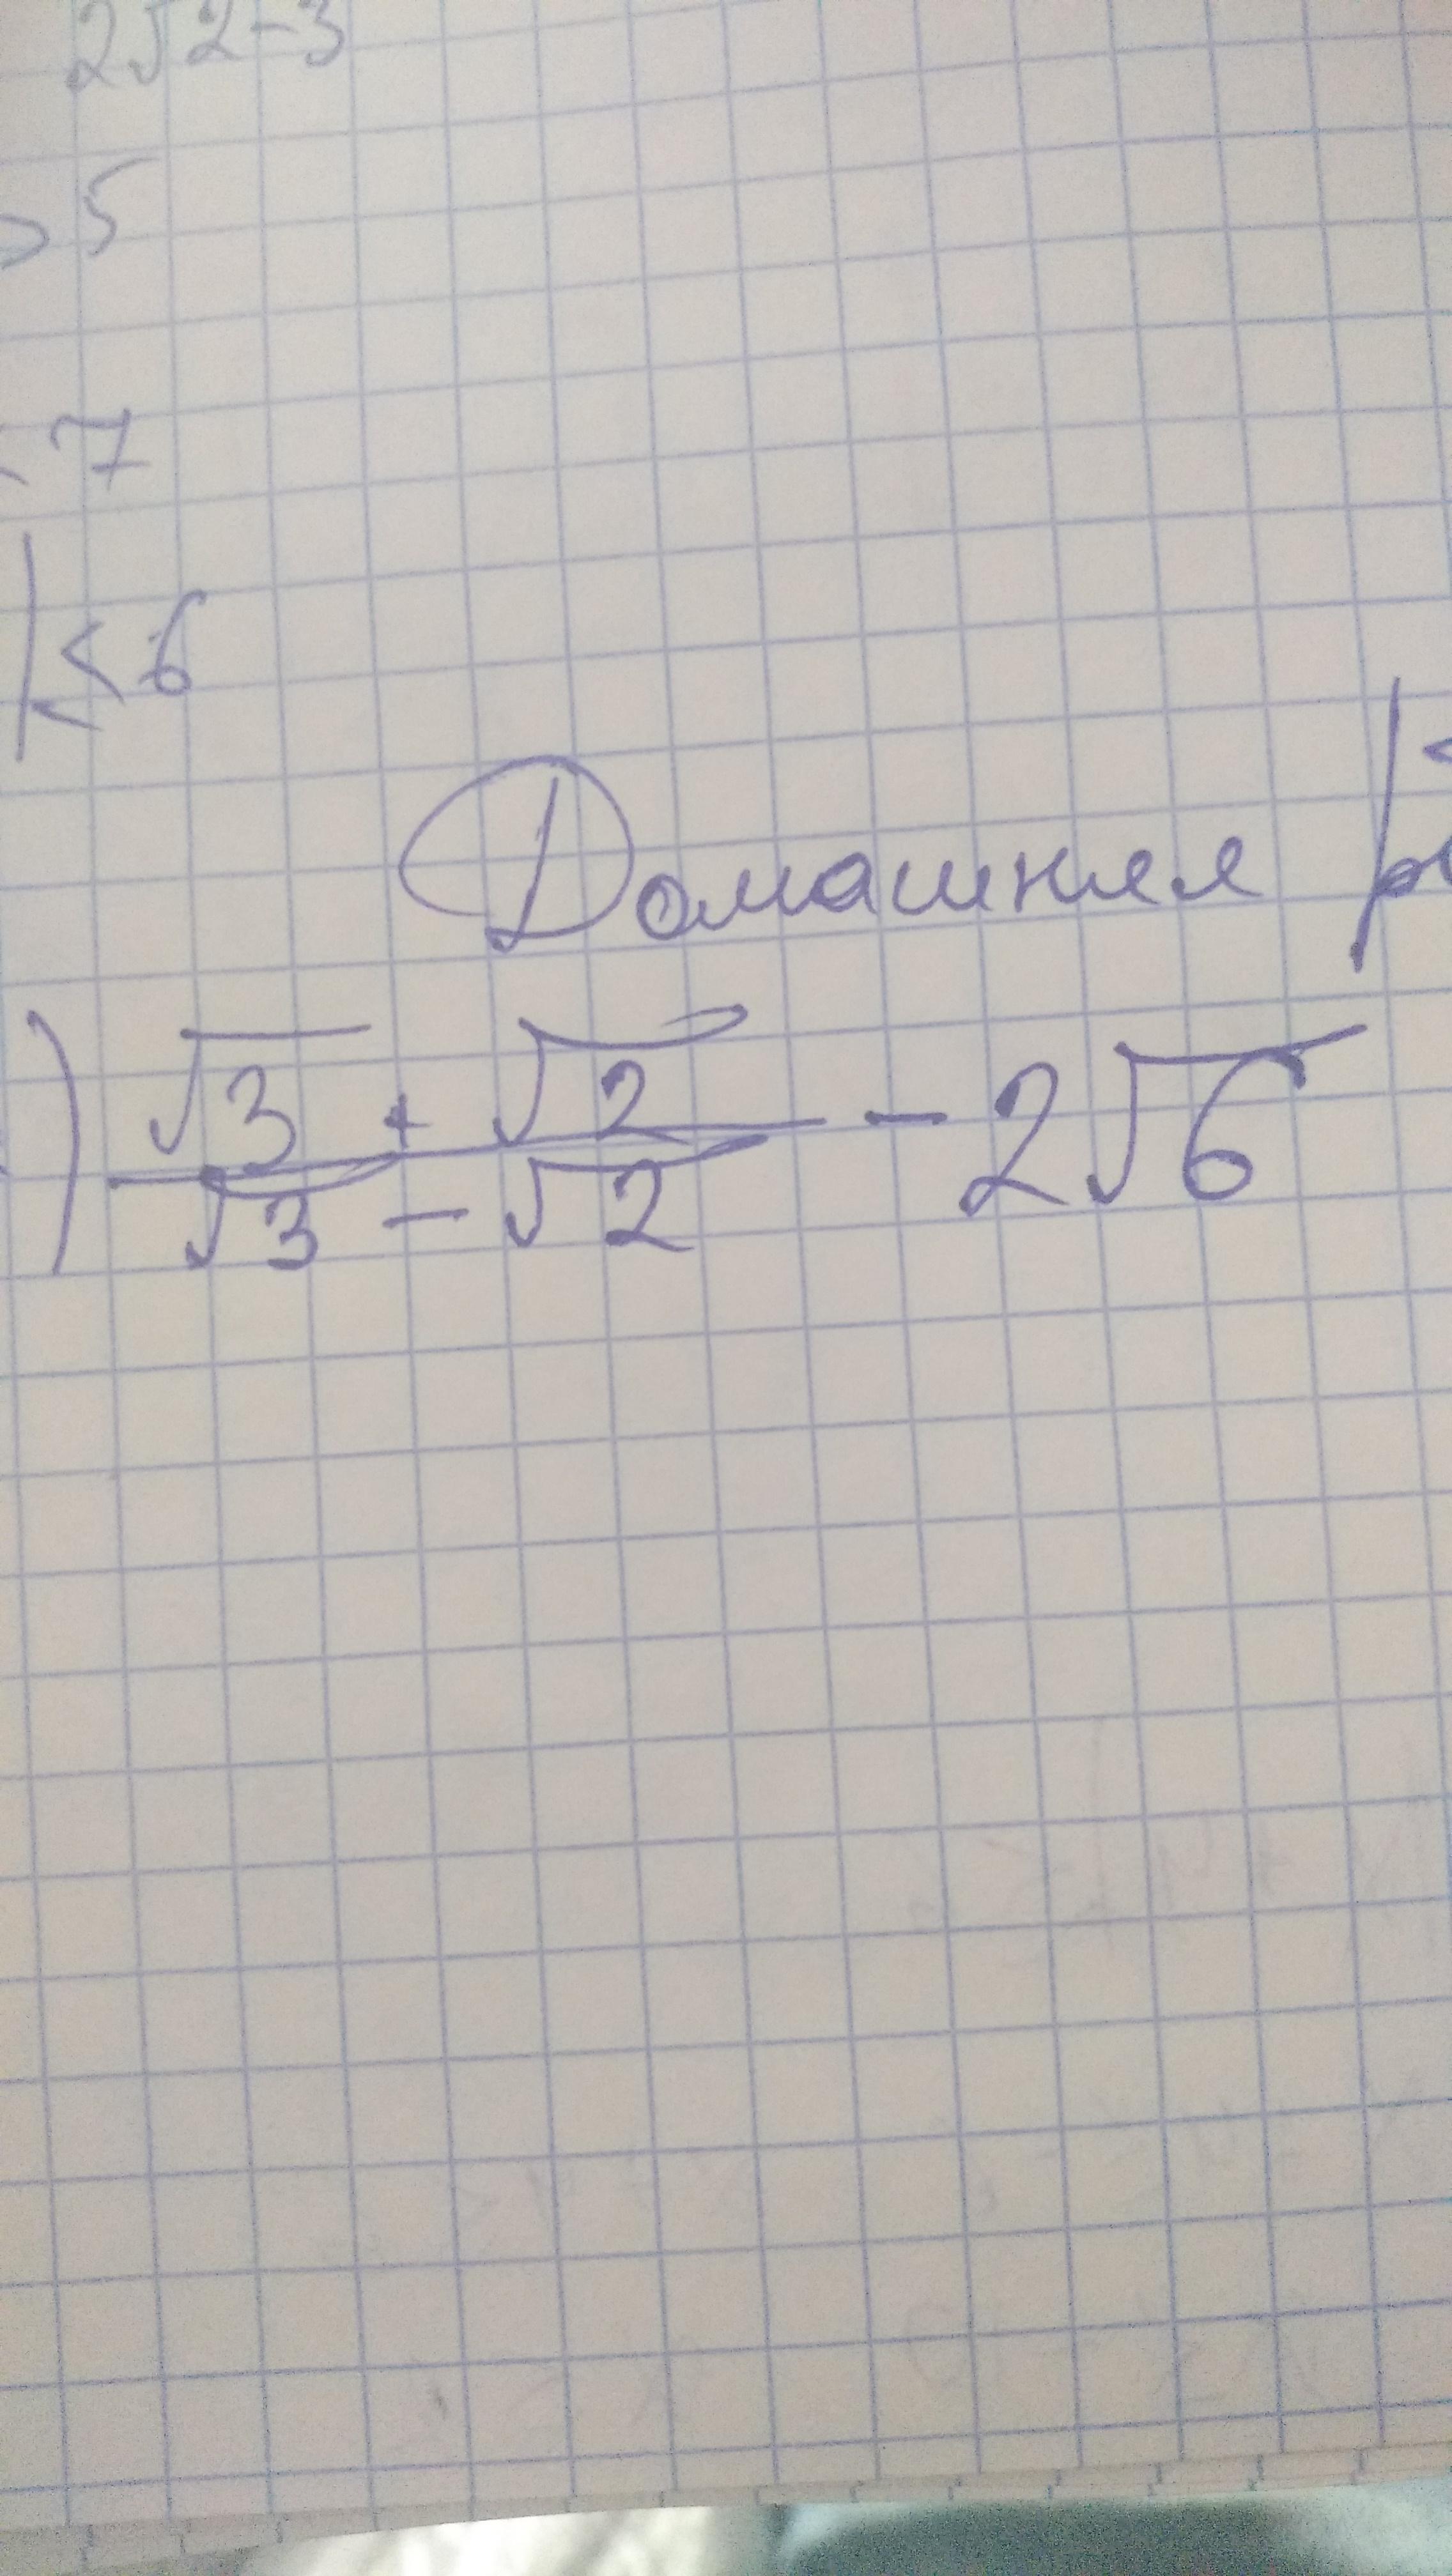 2√2-3
> 5
< 7
< 6
Домашняя
) (√3 + √2)/(√3 - √2) - 2√6